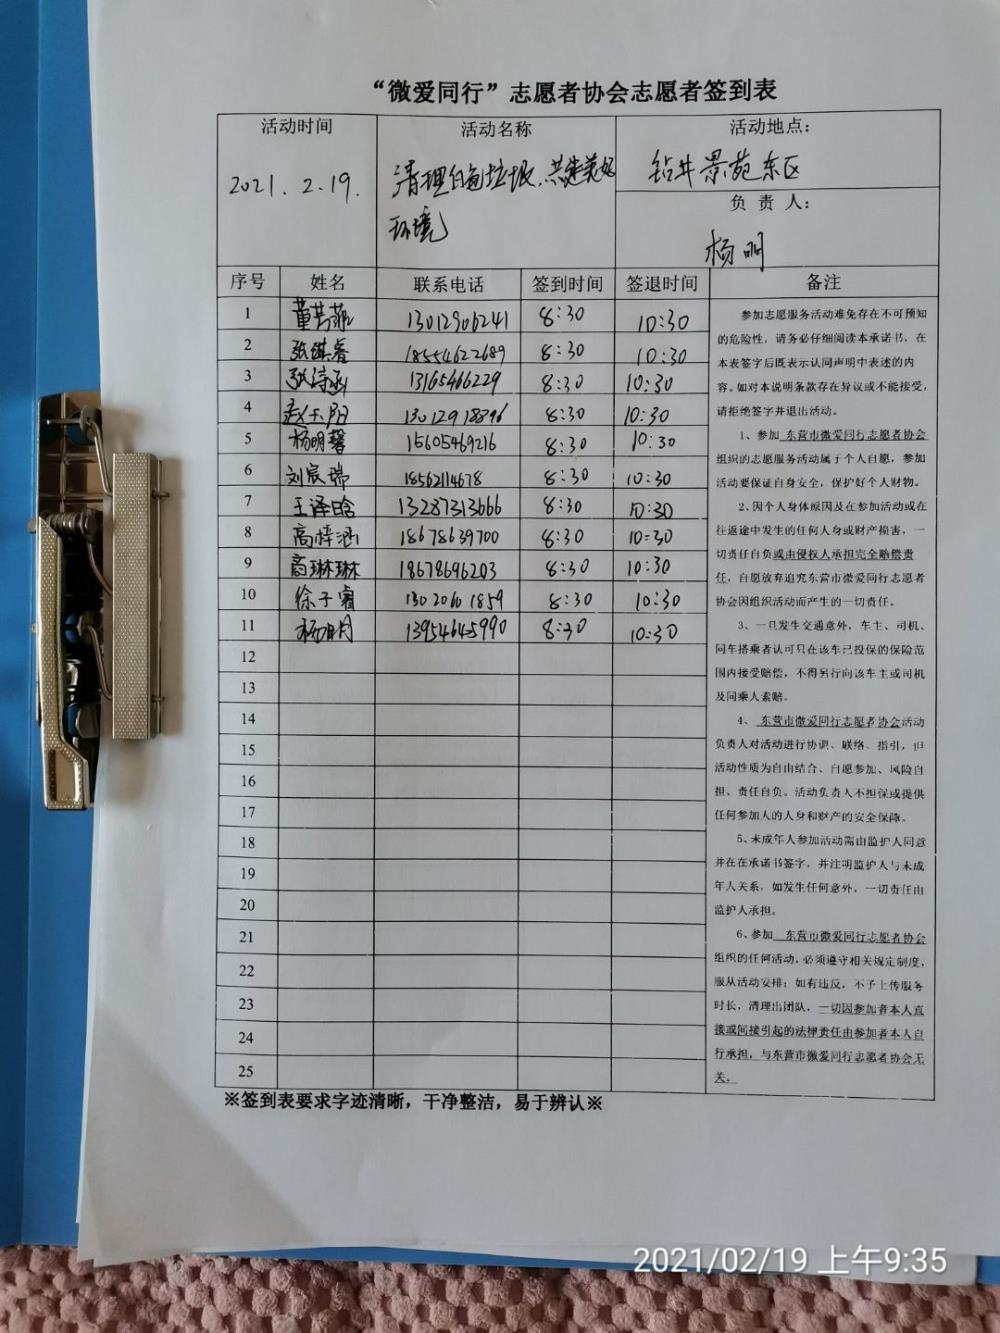 “微爱同行”志愿者协会志愿者签到表
活动时间 活动名称 活动地点：
2021.2.19. 清理白色垃圾.共建美好 钻井景苑东区
环境 负责人：
杨明
序号 姓名 联系电话 签到时间 签退时间 备注
1 董芸菲 13012906241 8:30 10:30
2 张淇睿 18554622689 8:30 10:30
3 张诗函 13165466229 8:30 10:30
4 赵玉阳 13012918896 8:30 10:30
5 杨明馨 15605469216 8:30 10:30
6 刘宸瑞 18562114678 8:30 10:30
7 王泽晗 13287313666 8:30 10:30
8 高梓涵 18678639700 8:30 10:30
9 高琳琳 18678696203 8:30 10:30
10 徐子睿 13020601859 8:30 10:30
11 杨明 13954645990 8:30 10:30
12
13
14
15
16
17
18
19
20
21
22
23
24
25
参加志愿服务活动难免存在不可预知
的危险性，请务必仔细阅读本承诺书，在
本表签字后既表示认同声明中表述的内
容。如对本说明条款存在异议或不能接受，
请拒绝签字并退出活动。
1、参加 东营市微爱同行志愿者协会
组织的志愿服务活动属于个人自愿，参加
活动要保证自身安全，保护好个人财物。
2、因个人身体原因及在参加活动或在
往返途中发生的任何人身或财产损害，一
切责任自负或由侵权人承担完全赔偿责
任，自愿放弃追究东营市微爱同行志愿者
协会因组织活动而产生的一切责任。
3、一旦发生交通意外，车主、司机、
同车搭乘者认可只在该车已投保的保险范
围内接受赔偿，不得另行向该车主或司机
及同乘人索赔。
4、 东营市微爱同行志愿者协会活动
负责人对活动进行协调、联络、指引，但
活动性质为自由结合、自愿参加、风险自
担、责任自负。活动负责人不担保或提供
任何参加人的人身和财产的安全保障。
5、未成年人参加活动需由监护人同意
并在在承诺书签字，并注明监护人与未成
年人关系，如发生任何意外，一切责任由
监护人承担。
6、参加 东营市微爱同行志愿者协会
组织的任何活动，必须遵守相关规定制度，
服从活动安排；如有违反，不予上传服务
时长，清理出团队，一切因参加者本人直
接或间接引起的法律责任由参加者本人自
行承担，与东营市微爱同行志愿者协会无
关。
※签到表要求字迹清晰，干净整洁，易于辨认※
2021/02/19 上午9:35